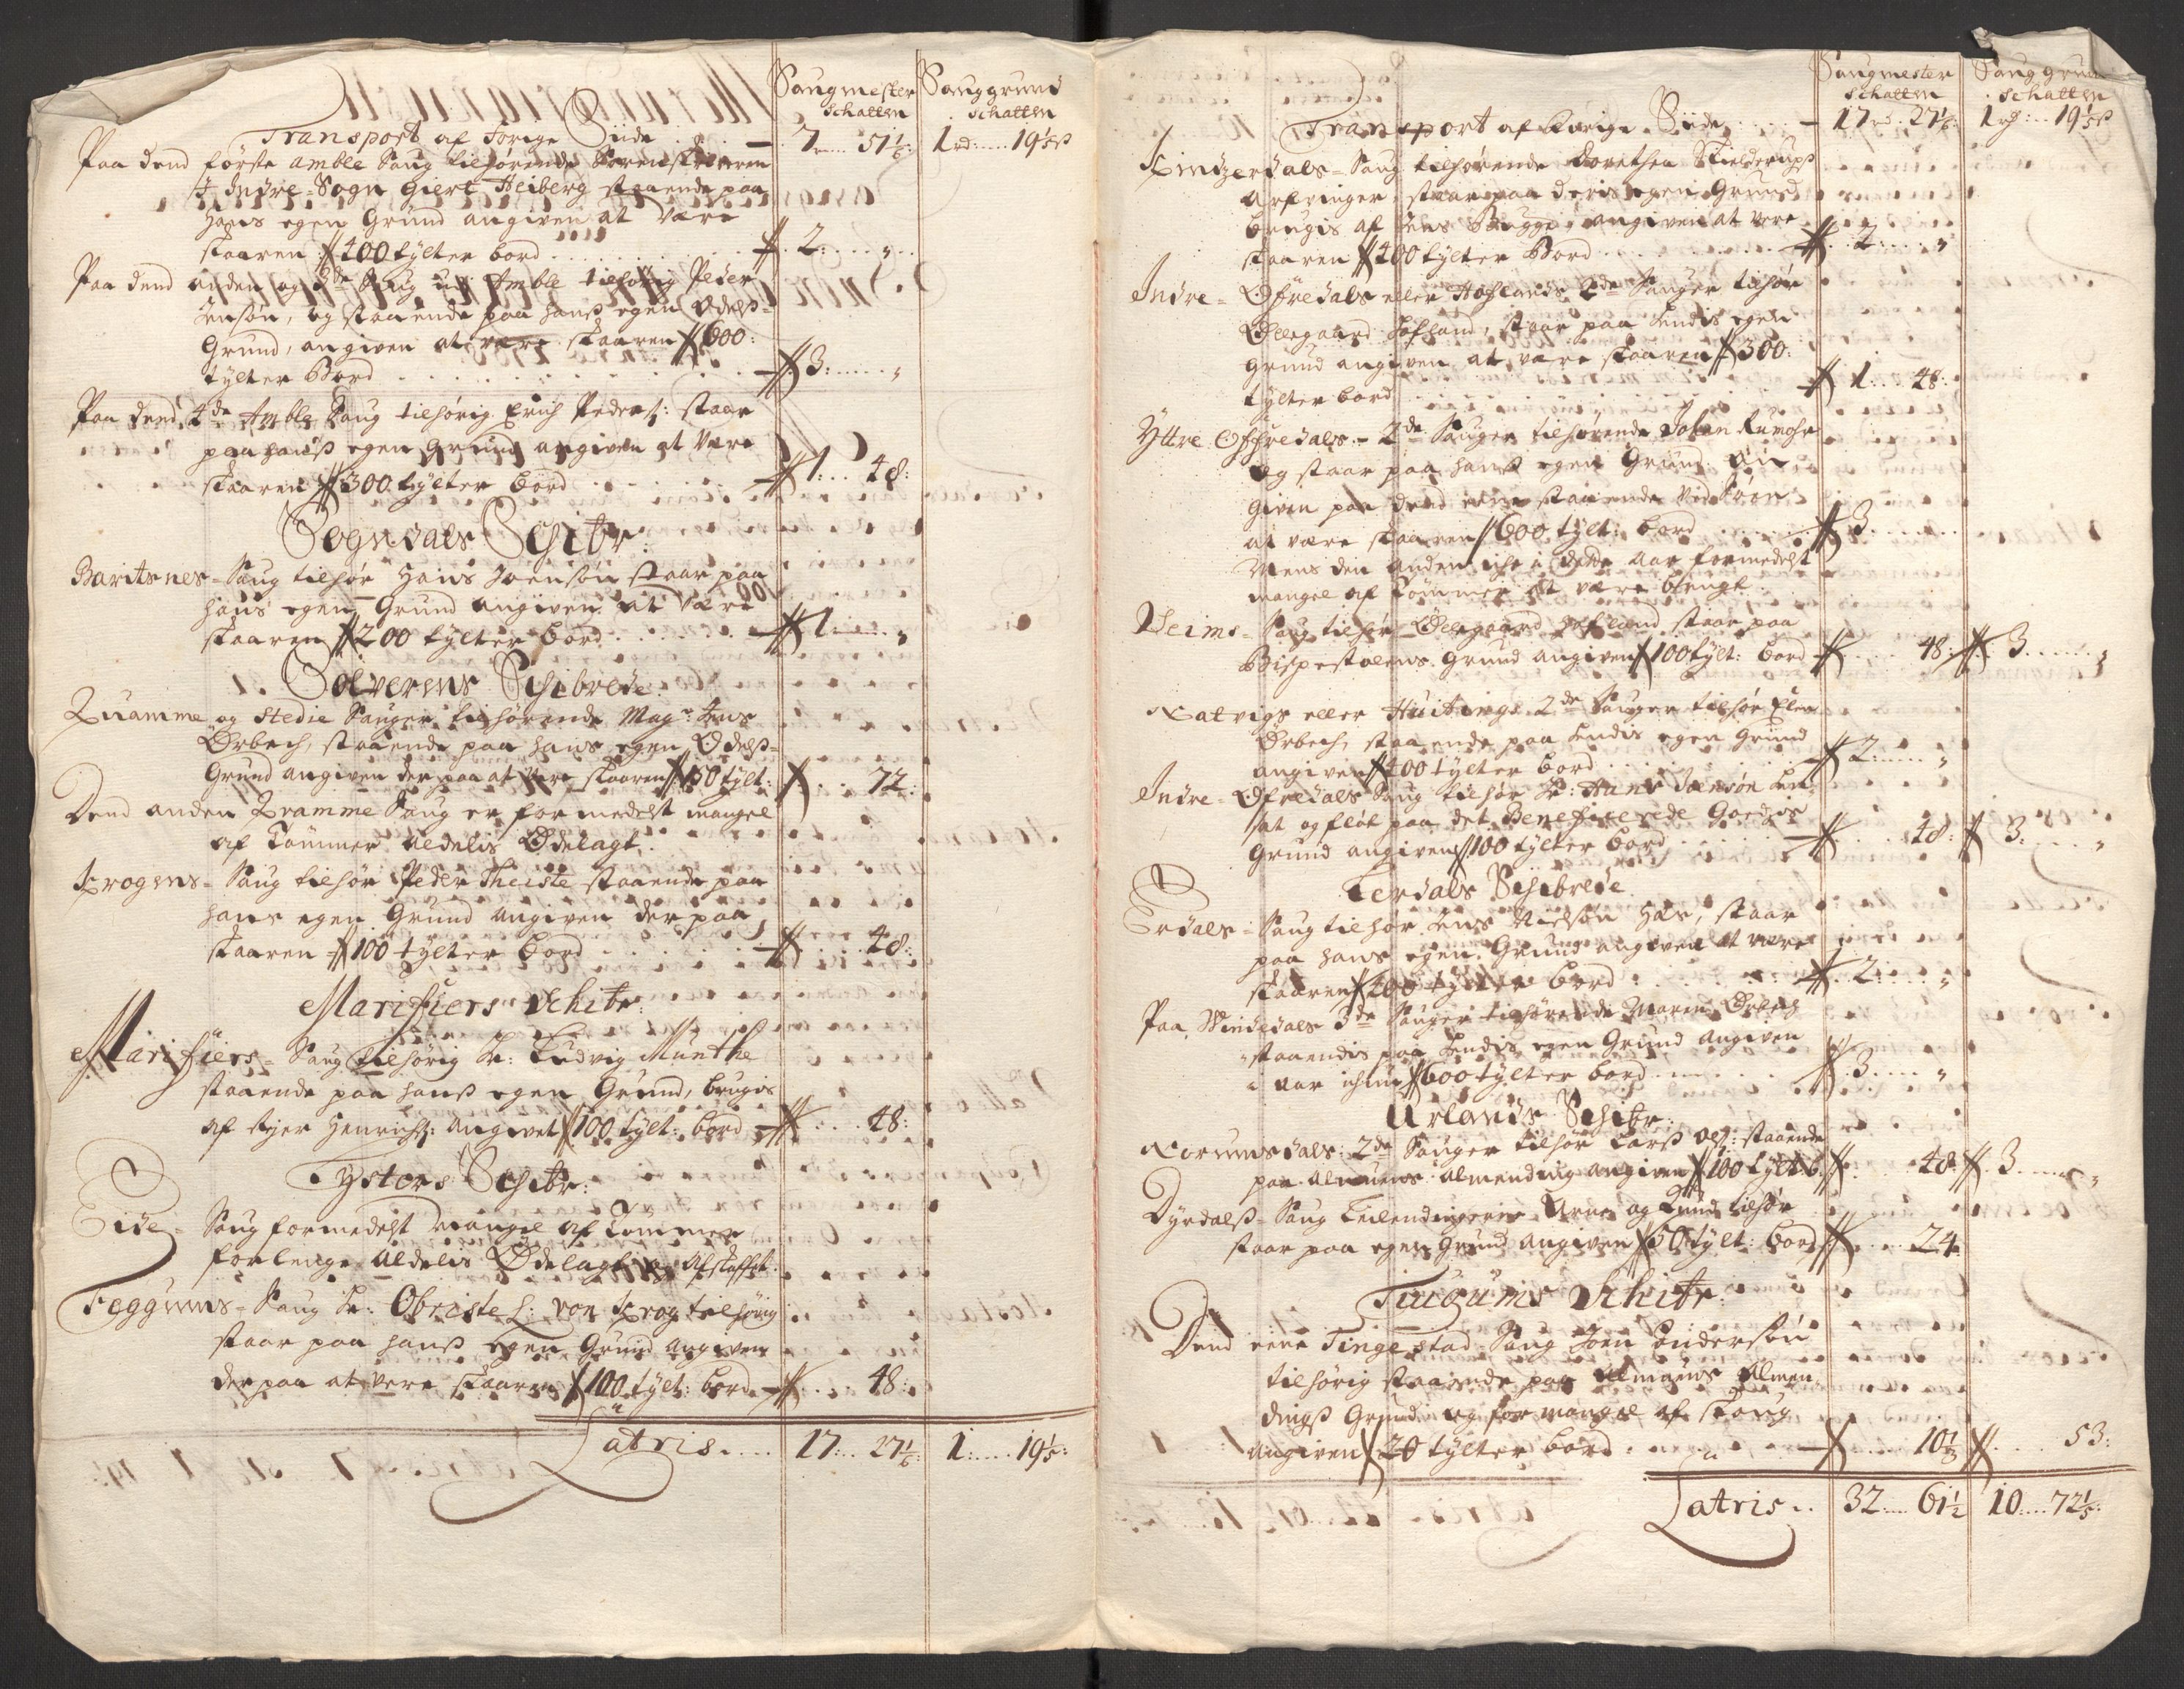 Saugmester Sauggrund
schatten schatten
Transport af forige Siide 7 51 1/6: 1 rd: 19 1/5 ß
Paa dend første Amble Saug tilhørende Sorenskriveren
I Indre-Sogn Giert Heiberg staaende paa
hans egen Grund angiven at være
skaaren 400 tylter bord 2:
Paa dend anden og 3de Saug ud Amble tilhørig Peder
Jensøn, og staaende paa hanß egen Odelß-
Grund, angiven at være skaaren 600:
tylter Bord 3:
Paa dend 4de Amble Saug tilhørig Erich Peders: staar
paa hanß egen Grund angiven at være
skaaren 300 tylter bord 1: 48:
Sogndals Schibr:
Baritsnes- Saug tilhør Hans Joensøn staar paa
hans egen Grund angiven at være
skaaren 200 tylter bord 1
Solverens Schibrede
Quamme og Stedie Sauger tilhørende Magr Jens
Ørbech, staaende paa hans egen Odelß-
Grund angiven der paa at være skaaren 150 tylt: 72:
Dend anden Qramme Saug er formedelst mangel
af Tømmer aldelis Ødelagt.
Krogens- Saug tilhør Peder Theiste staaende paa
hans egen Grund angiven der paa
skaaren 100 tylter bord 48:
Marifiers Schibr:
Marifiers- Saug tilhørig Hr: Ludvig Munthe
staaende paa hanß egen Grund, brugis
af Henrichs: angivet 100 tylt: bord 48:
Tysters Schibr:
Eide- Saug formedelst mangel af Tømmer
forlenge aldelis Ødelagt og afskaffet.
Feggums- Saug Hr: Obriste L: von Krog tilhørig
staar paa hanß egen Grund angiven
der paa at være skaaren 100 tylt: bord 48:
Latris 17: 27 1/6: 1: 19 1/5:
Saugmester Sauggrund
schatten schatten
Transport af forige Siide 17 rd 27 1/6: 1 rd: 19 1/5 ß
Kindzerdals- Saug tilhørende Dorethea Skielderups
Arfvinger, staar paa deris egen Grund
brugis af Jens Bugge, angiven at være
skaaren 400 tylter Bord 2
Indre- Ofredals eller Hoflands 2de Sauger tilhør
Ollegaard Hofland, staar paa hendis egen
Grund angiven at være skaaren 300:
tylter bord 1: 48:
Yttre Offredals- 2de Sauger tilhørende Johan Rumohr
og staar paa hanß egen Grund An
given paa dend eene staaende ved
at være skaaren 600 tylt: bord 3
Mens den anden iche i dette aar formedelst
mangel af Tømmer at være brugt
Veims- Saug tilhør Ollegaard Hofland staar paa
Bispestolens Grund angiven 100 tylt: bord 48: 3
Natvigs eller Huitings 2de Sauger tilhør
Ørbech, staaende paa hendis egen Grund
angiven 400 tylter bord 2
Indre- Ofredals Saug tilhør Hr: Hans Joensøn
sat og fløt paa det Beneficerede Goedsis
Grund angiven 100 tylter bord 48: 3:
Lerdals Schibrede
Erdals- Saug tilhør Jens Nielsøn staar
paa hans egen Grund angiven at være
skaaren 400 tylter bord 2:
Paa Vindedals 3de Sauger tilhørende Maren Ørbech
staaendis paa hendis egen Grund angiven
i aar 600 tylter bord 3
Urlands Schibr:
Norumsdals: 2de Sauger tilhør Larß staaende
paa Almuens almending angiven 100 tylt: b: 48: 3
Dyrdalß- Saug Arne og tilhør
staar paa egen Grund angiven 50 tylt: bord 24
Fiugums Schibr
Dend eene Tingestad- Saug Joen
tilhørig staaende paa Almuens Almen
dings Grund og for mangel af skoug
angiven 20 tylter bord 10 53:
Latris 32 61 1/2 10: 72 1/5: